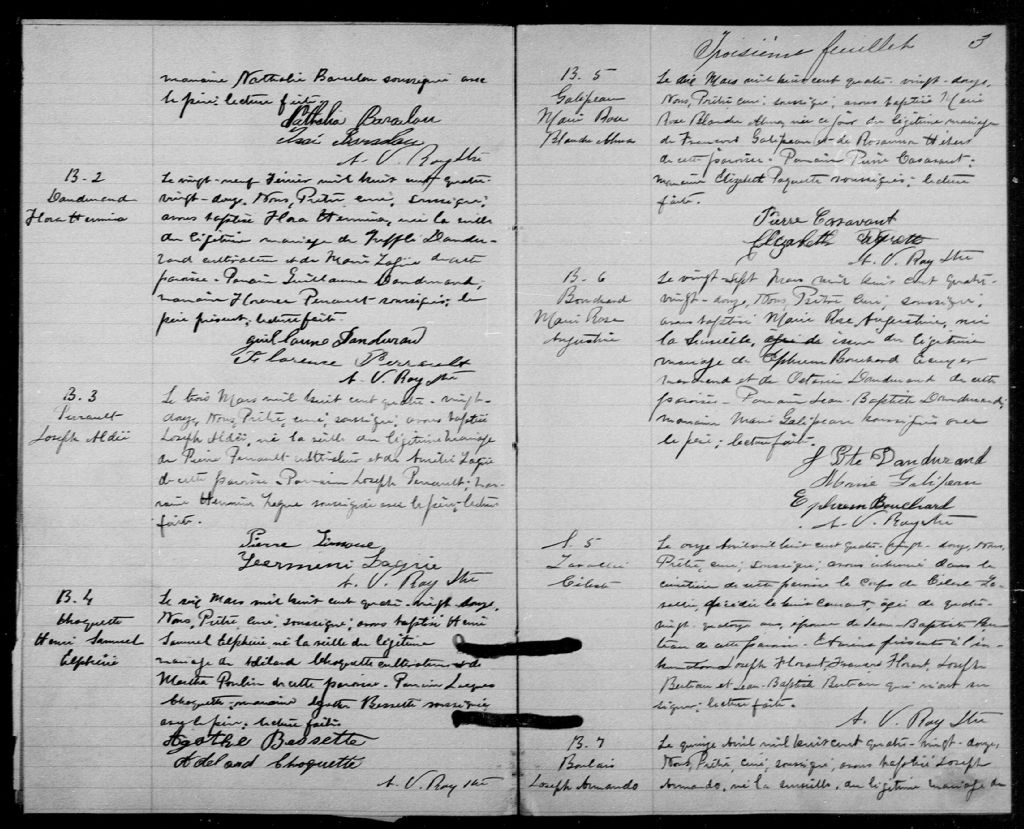 marraine Nathalie Barsalou soussigné avec
le père; lecture faite.
Nathalie Barsalou
A. V. Roy Ptre
B-2
Dandurand
Flora Hermina
Le vingt-neuf Février mil huit cent quatre-
vingt-douze, Nous, Prêtre, curé, soussigné;
avons baptisé Flora Hermina, née la veille
du légitime mariage de Treffle Dandu-
rand cultivateur et de Marie Lagüe de cette
paroisse. Parrain Guillaume Dandurand,
marraine Florence Perrault soussignés; le
père présent; lecture faite.
Guillaume Dandurand
Florence Perrault
A. V. Roy Ptre
B. 3
Perrault
Joseph Aldéi
Le trois Mars mil huit cent quatre-vingt-
douze, Nous, Prêtre, curé, soussigné; avons baptisé
Joseph Aldéi, né la veille du légitime mariage
de Pierre Perrault cultivateur et de Amélie Lagüe
de cette paroisse. Parrain Joseph Perrault; mar-
raine lecture
faite.
Pierre
A. V. Roy Ptre
B. 4
Choquette
Henri Samuel
Elphérie
Le six Mars mil huit cent quatre-vingt douze,
Nous, Prêtre, curé, soussigné; avons baptisé Henri
Samuel Elphérie né la veille du légitime
mariage de Adélard Choquette cultivateur et de
Martha Poulin de cette paroisse. Parrain Jacques
Choquette; marraine Agathe Bessette soussignée
avec le père; lecture faite.
Agathe Bessette
Adelard Choquette
A. V. Roy Ptre
Troisième feuillet 3
B. 5
Galipeau
Marie Rose
Blanche Alma
Le dix Mars mil huit cent quatre-vingt-douze,
Nous, Prêtre curé, soussigné; avons baptisé Marie
Rose Blanche Alma née ce jour du légitime mariage
de François Galipeau et de Rosanna Hébert
de cette paroisse. Parrain Pierre Casavant.
marraine Elizabeth Paquette soussignés; lecture
faite.
Pierre Casavant
Elizabeth
A. V. Roy Ptre
B. 6
Bouchard
Marie Rose
Augustine
Le vingt-sept Mars mil huit cent quatre-
vingt-douze, Nous, Prêtre curé, soussigné;
avons baptisé Marie Rose Augustine, née
la surveille, du légitime
mariage de Ephrem Bouchard Ecuyer
marchand et de Octavie Dandurand de cette
paroisse. Parrain Jean-Baptiste Dandurand;
marraine Marie Galipeau soussignés avec
le père; lecture faite.
J Bte Dandurand
Marie Galipeau
Ephrem Bouchard
A. V. Roy Ptre
S. 5
Céleste
Le onze Avril mil huit cent quatre-vingt-douze, Nous,
Prêtre, curé, soussigné; avons inhumé dans le
cimetière de cette paroisse le corps de Céleste
décédée le huit courant, âgée de quatre-
vingt-quatorze ans, épouse de Jean-Baptiste
de cette paroisse. Etaient présents à l'in-
humation Joseph Florant, François Florant, Joseph
et Jean-Baptiste qui n'ont su
signer; lecture faite.
A. V. Roy Ptre
B. 7
Boulais
Joseph Armando
Le quinze Avril mil huit cent quatre-vingt-douze,
Nous, Prêtre, curé, soussigné, avons baptisé Joseph
Armando, né la surveille, du légitime mariage de